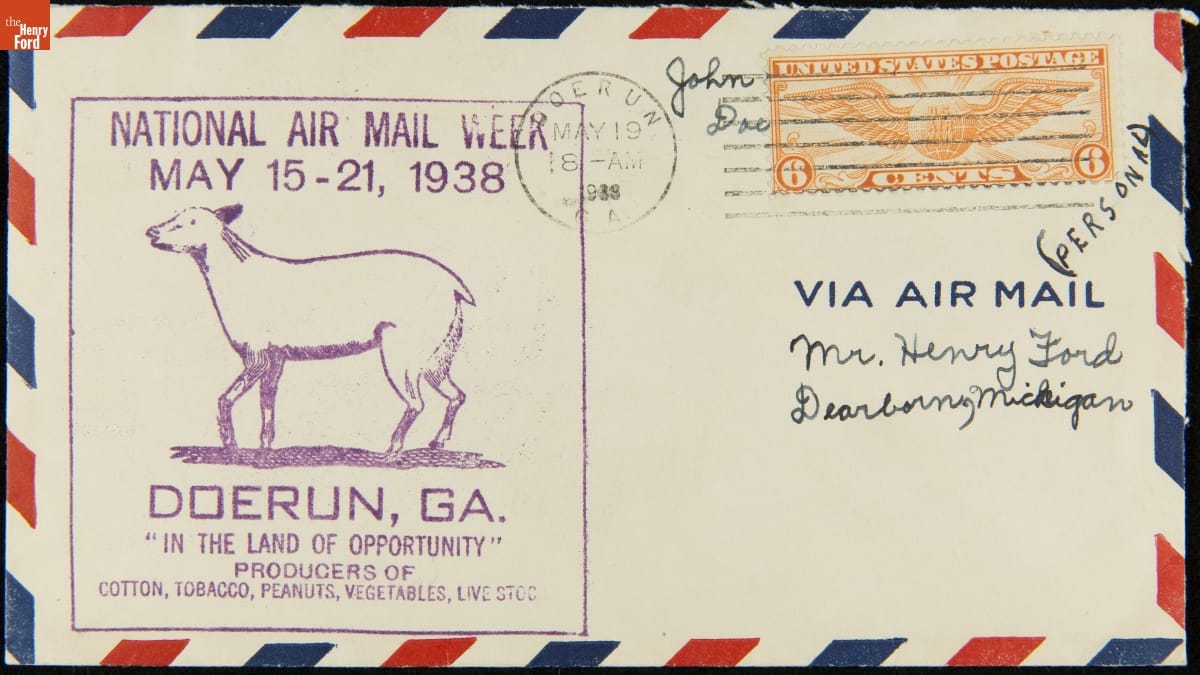 the
Henry
Ford
NATIONAL AIR MAIL WEEK
MAY 15-21, 1938
DOERUN, GA.
"IN THE LAND OF OPPORTUNITY"
PRODUCERS OF
COTTON, TOBACCO, PEANUTS, VEGETABLES, LIVE STOC
DOERUN
MAY 19
18-AM
1938
GA
John
Doe
UNITED STATES POSTAGE
U.S.
6 CENTS 6
(PERSONAL)
VIA AIR MAIL
Mr. Henry Ford
Dearborn, Michigan